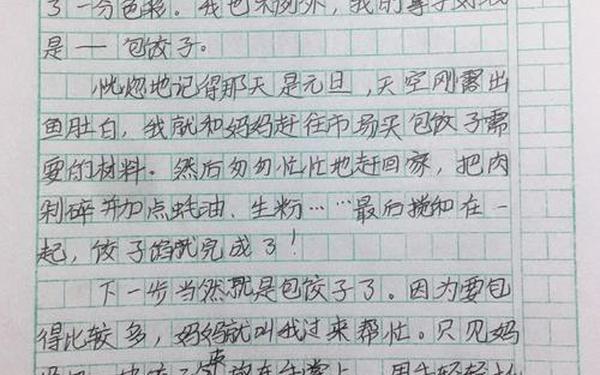 了一分色彩。我也不例外，我的拿手好戏
是——包饺子。
恍惚地记得那天是元旦，天空刚露出
鱼肚白，我就和妈妈赶往市场买包饺子需
要的材料。然后匆匆忙忙地赶回家，把肉
剁碎并加点蚝油、生粉……最后搅和在一
起，饺子馅就完成了！
下一步当然就是包饺子了。因为要包
得比较多，妈妈就叫我过来帮忙。只见妈